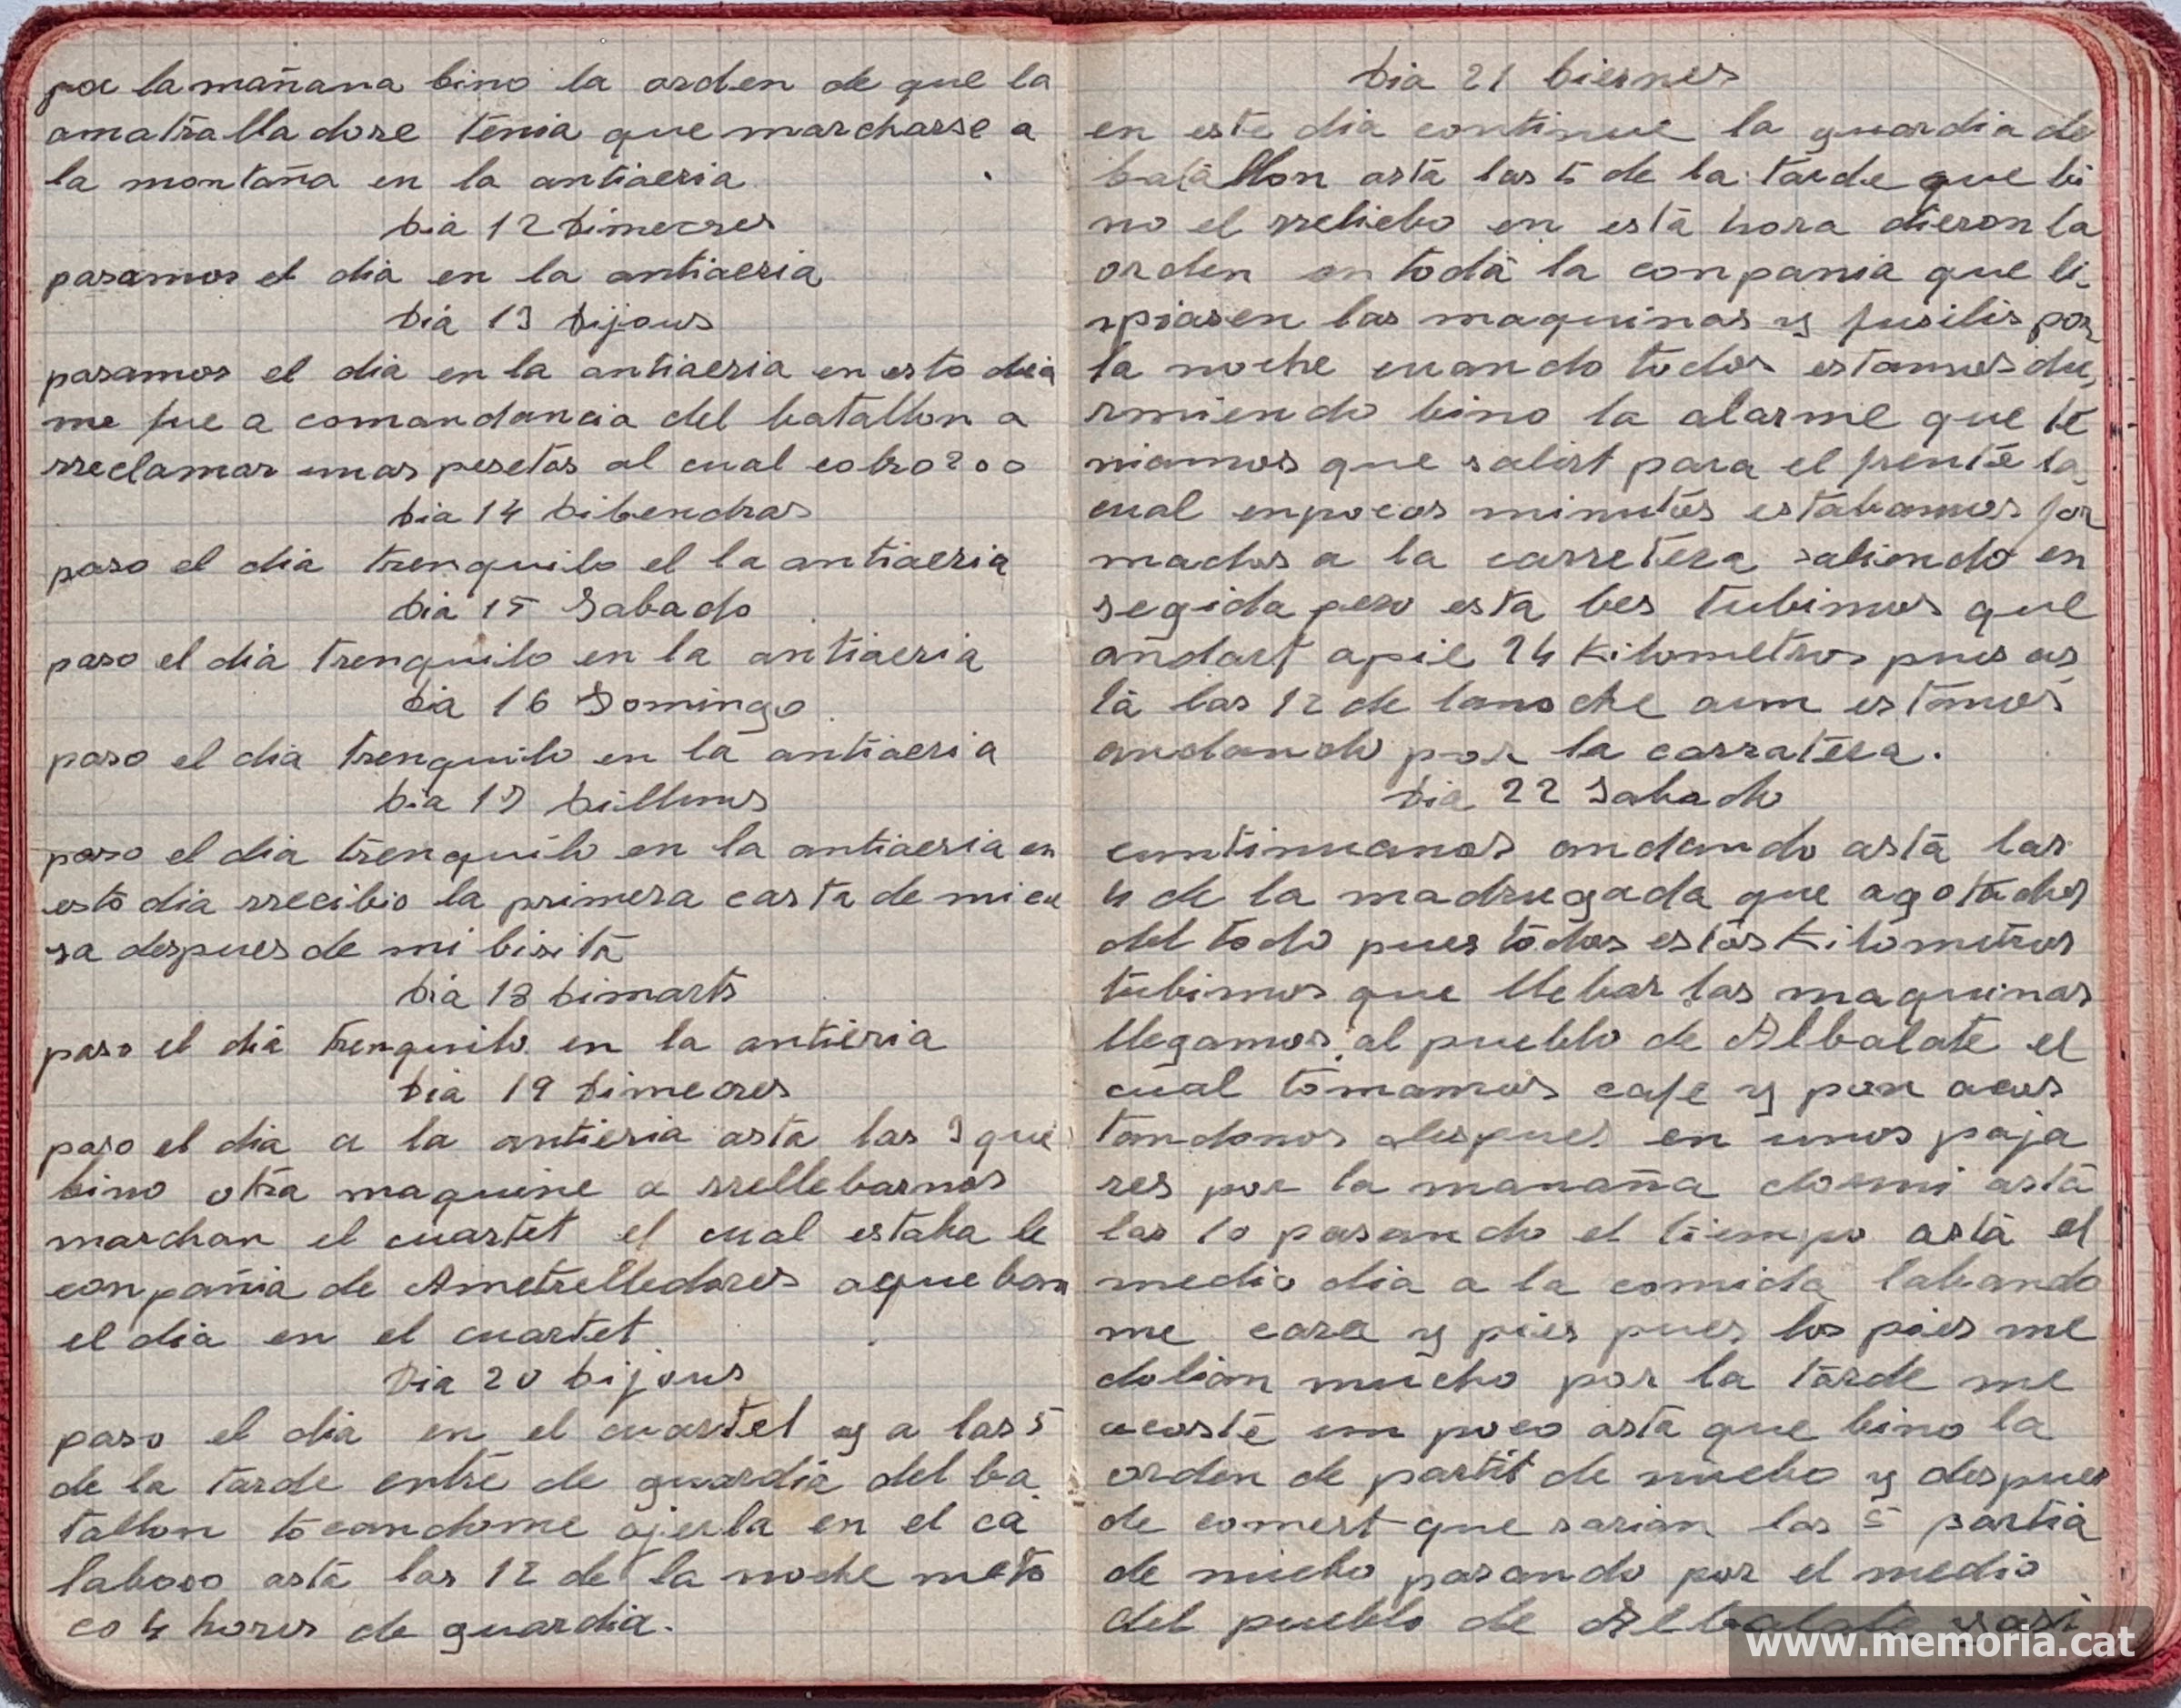 por la mañana bino la orden de que la
amatralladore tenia que marcharse a
la montaña en la antiaeria
Dia 12 Dimecres
pasamos el dia en la antiaeria
Dia 13 Dijous
pasamos el dia en la antiaeria en esto dia
me fue a comandancia del batallon a
rreclamar unas pesetas al cual cobro 200
Dia 14 Dibendras
paso el dia trenquilo el la antiaeria
Dia 15 Sabado
paso el dia trenquilo en la antiaeria
Dia 16 Domingo
paso el dia trenquilo en la antiaeria
Dia 17 Dilluns
paso el dia trenquilo en la antiaeria en
esto dia rrecibio la primera carta de mi ca
sa despues de mi bisita
Dia 18 Dimarts
paso el dia trenquilo en la antieria
Dia 19 Dimecres
paso el dia a la antieria asta las 3 que
bino otra maquine a rrellebarnos
marchan el cuartet el cual estaba le
conpañia de Ametrelledores aqueban
el dia en el cuartet
Dia 20 Dijous
paso el dia en el cuartel y a las 5
de la tarde entre de guardia del ba
tallon tocandome ajerla en el ca
laboso asta las 12 de la noche meto
co 4 hores de guardia.
Dia 21 biernes
en este dia continue la guardia de
batallon asta las 5 de la tarde que bi
no el rreliebo en esta hora dieron la
orden en toda la conpania que li
npiasen las maquinas y fusilis por
la noche cuando todos estamos du
rmiendo bino la alarme que te
niamos que salirt para el frente la
cual enpocos minutos estabamos for
mados a la carretera saliendo en
segida pero esta bes tubimos que
andart apie 24 Kilometros pues as
ta las 12 de lanoche aun estamos
andando por la carratera.
Dia 22 Sabado
cuntinuanos andando asta las
4 de la madrugada que agotados
del todo pues todos estos Kilometros
tubimos que llebar las maquinas
llegamos al pueblo de Albalate el
cual tomamos cafe y pan acos
tandonos despues en unos paja
res por la manaña dormi asta
las 10 pasando el tiempo asta el
medio dia a la comida labando
me cara y pies pues los pies me
dolian mucho por la tarde me
acoste un poco asta que bino la
orden de partit de nuebo y despues
de comert que sarian las 5 partia
de nuebo pasando por el medio
del pueblo de Albalate y asi
www.memoria.cat